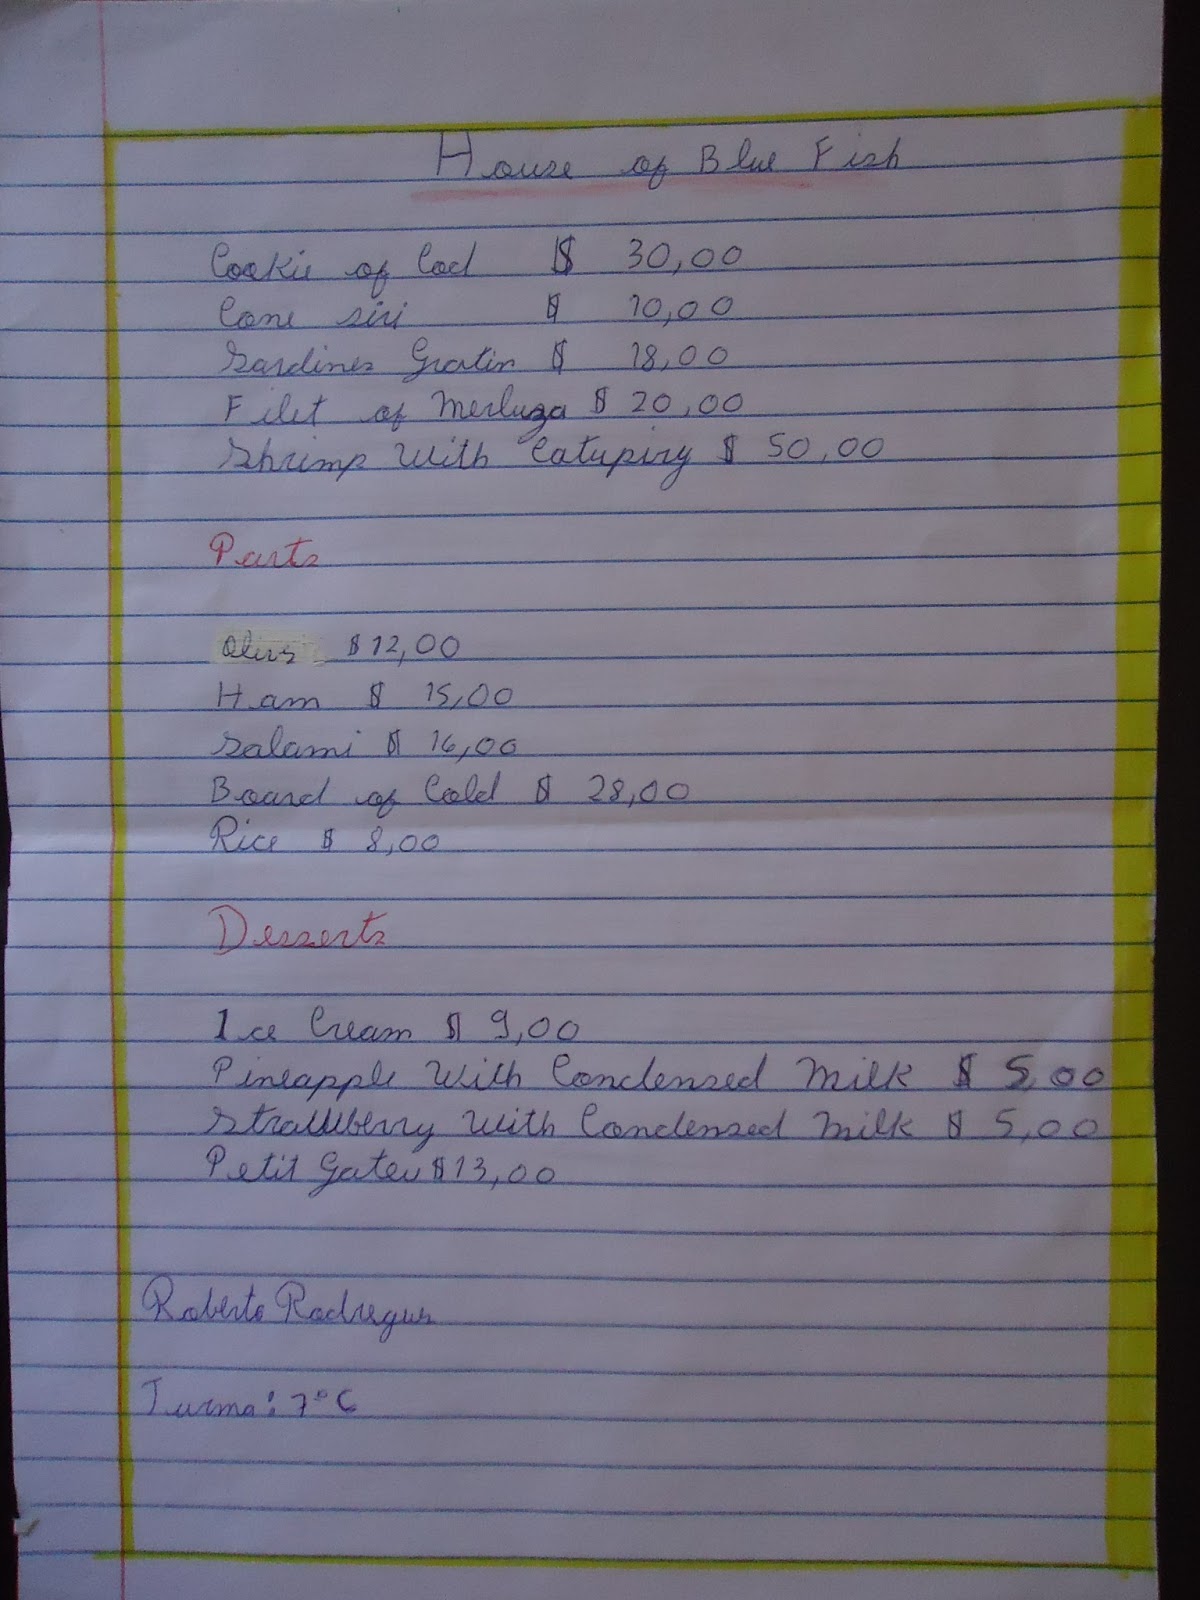 House of Blue Fish
Cookie of Cod $ 30,00
Cone siri $ 10,00
Sardines Gratin $ 18,00
Filet of Merluza $ 20,00
Shrimp With Catupiry $ 50,00
Parts
$ 12,00
Ham $ 15,00
Salami $ 16,00
Board of Cold $ 28,00
Rice $ 8,00
Desserts
Ice Cream $ 9,00
Pineapple With Condensed Milk $ 5,00
Strawberry With Condensed Milk $ 5,00
Petit Gateu $ 13,00
Roberto Rodregues
Turma: 7º C